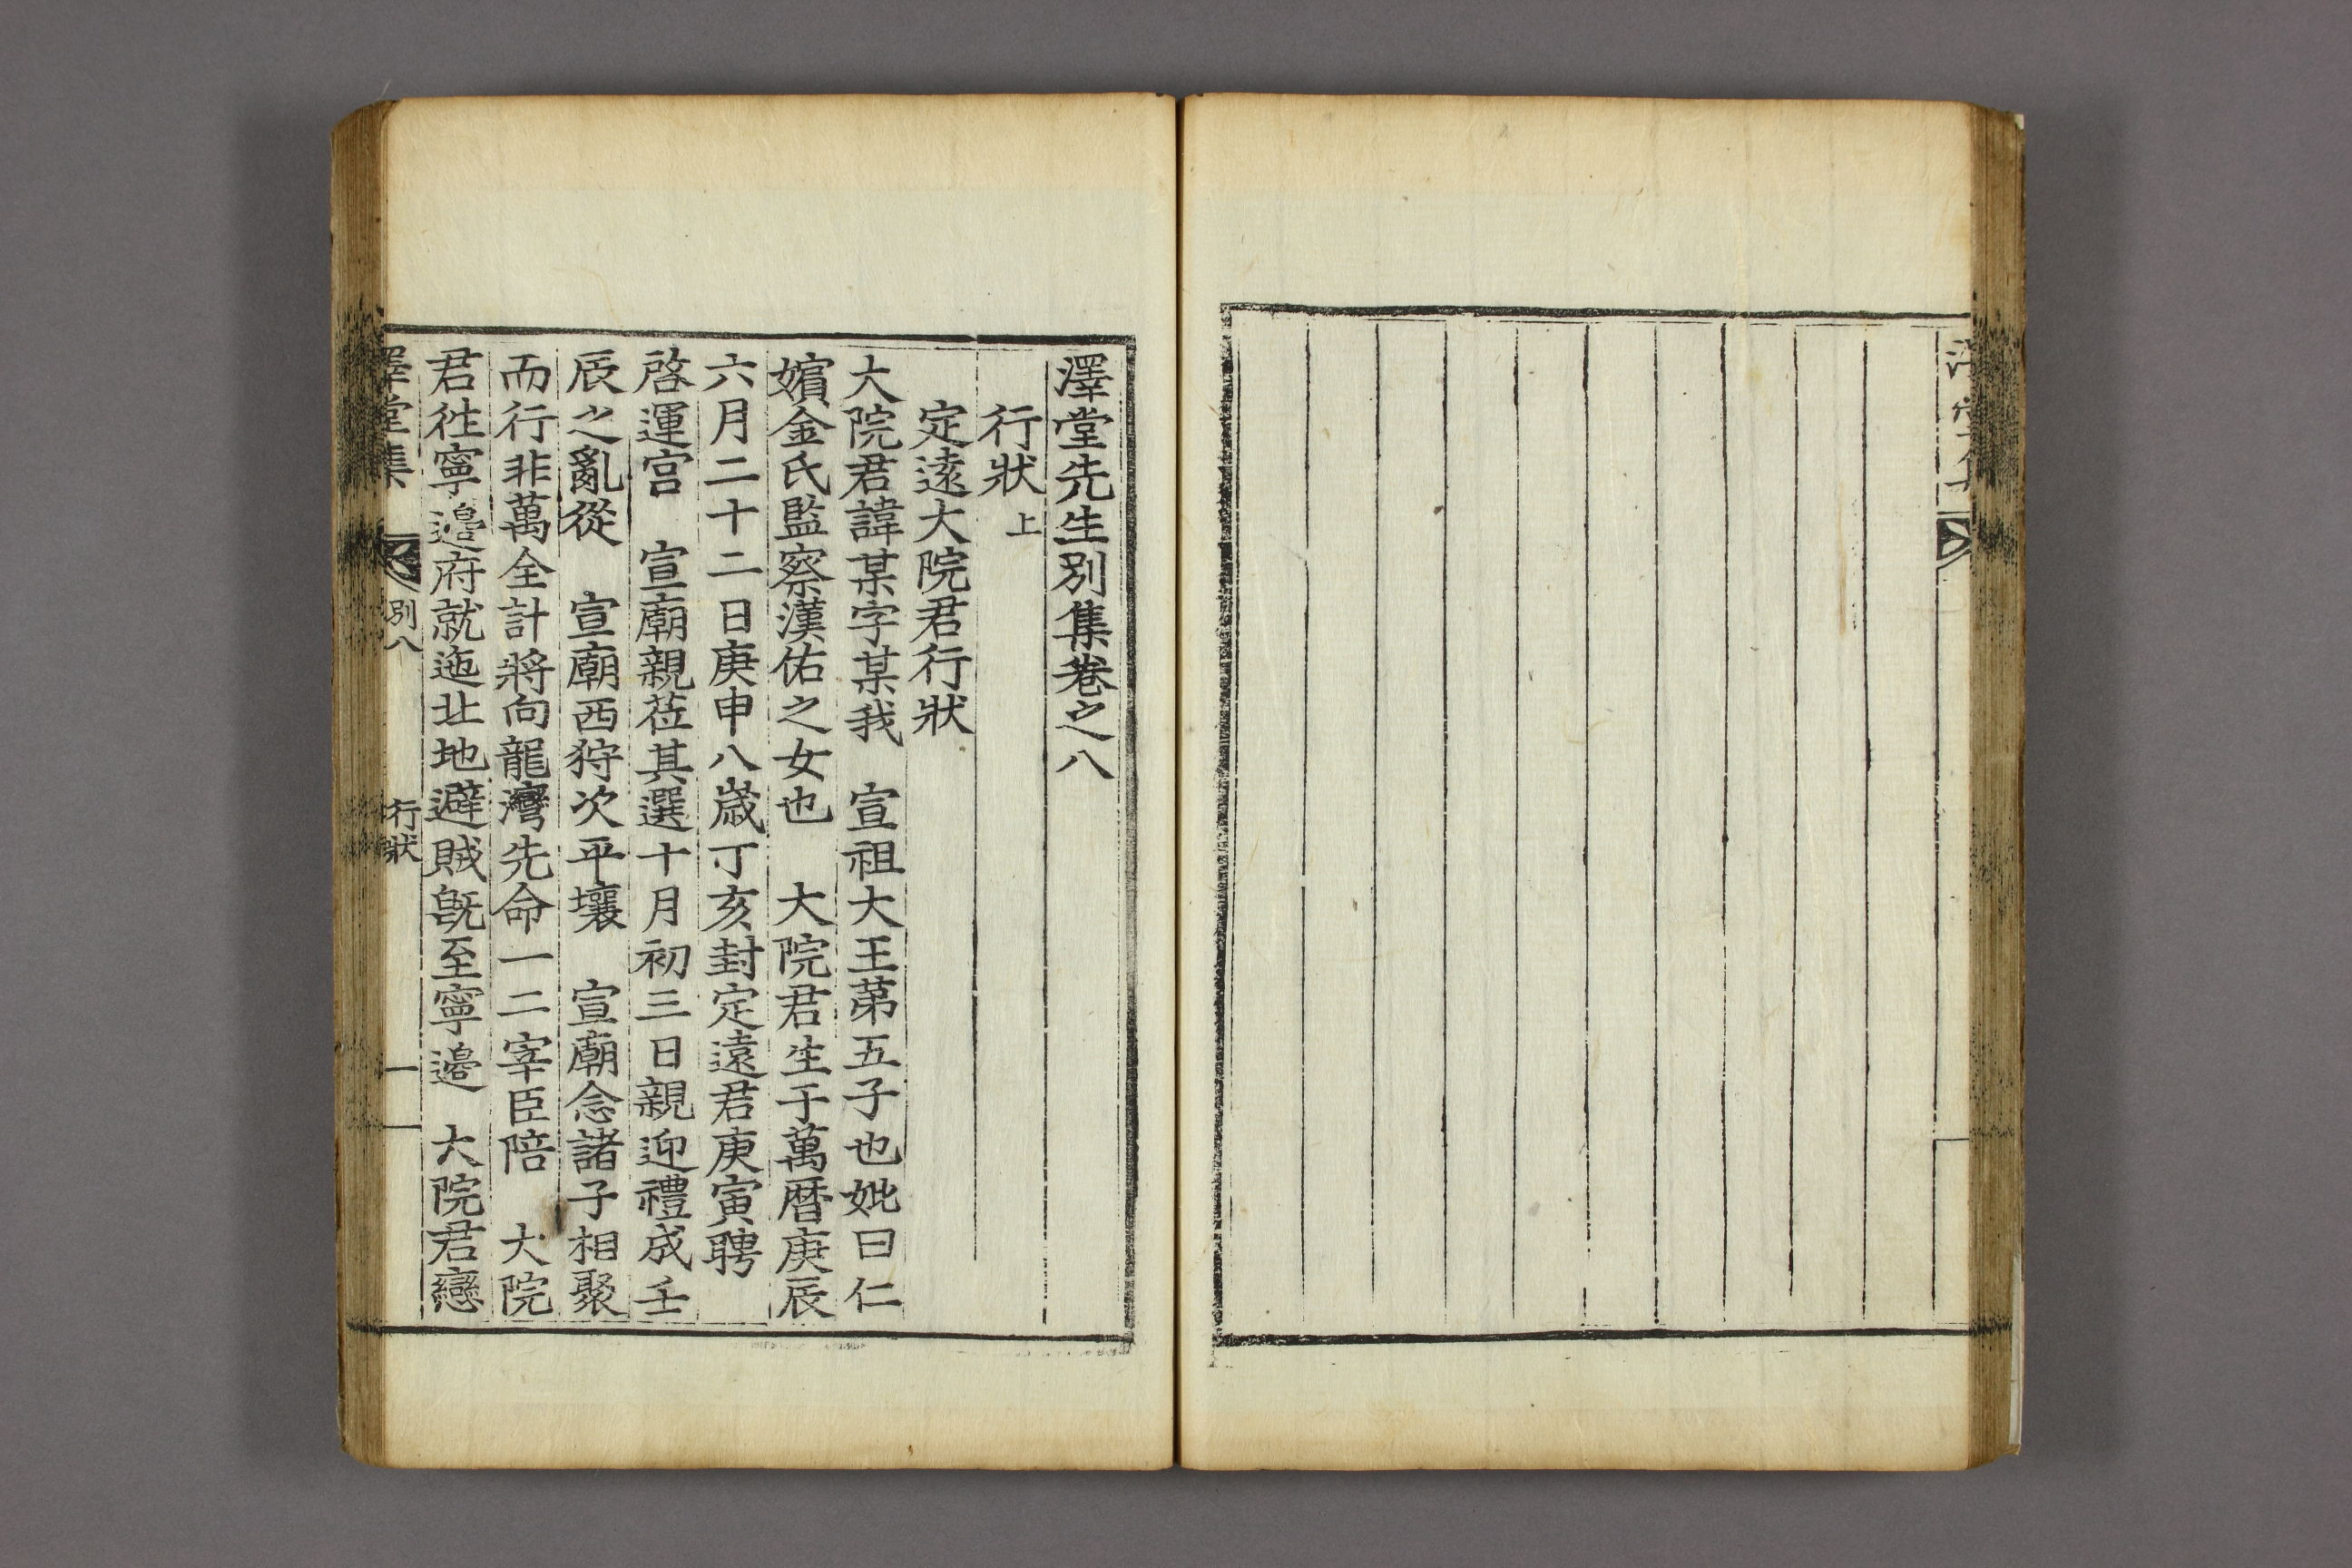 澤堂先生別集卷之八
行狀 上
定遠大院君行狀
大院君諱某字某我 宣祖大王苐五子也妣曰仁
嬪金氏監察漢佑之女也 大院君生于萬曆庚辰
六月二十二日庚申八歲丁亥封定遠君庚寅聘
啓運宮 宣廟親莅其選十月初三日親迎禮成壬
辰之亂從 宣廟西狩次平壤 宣廟念諸子相聚
而行非萬全計將向龍灣先命一二宰臣陪 大院
君徃寧邊府就迤北地避賊旣至寧邊 大院君戀
澤堂集 別八 行狀 一